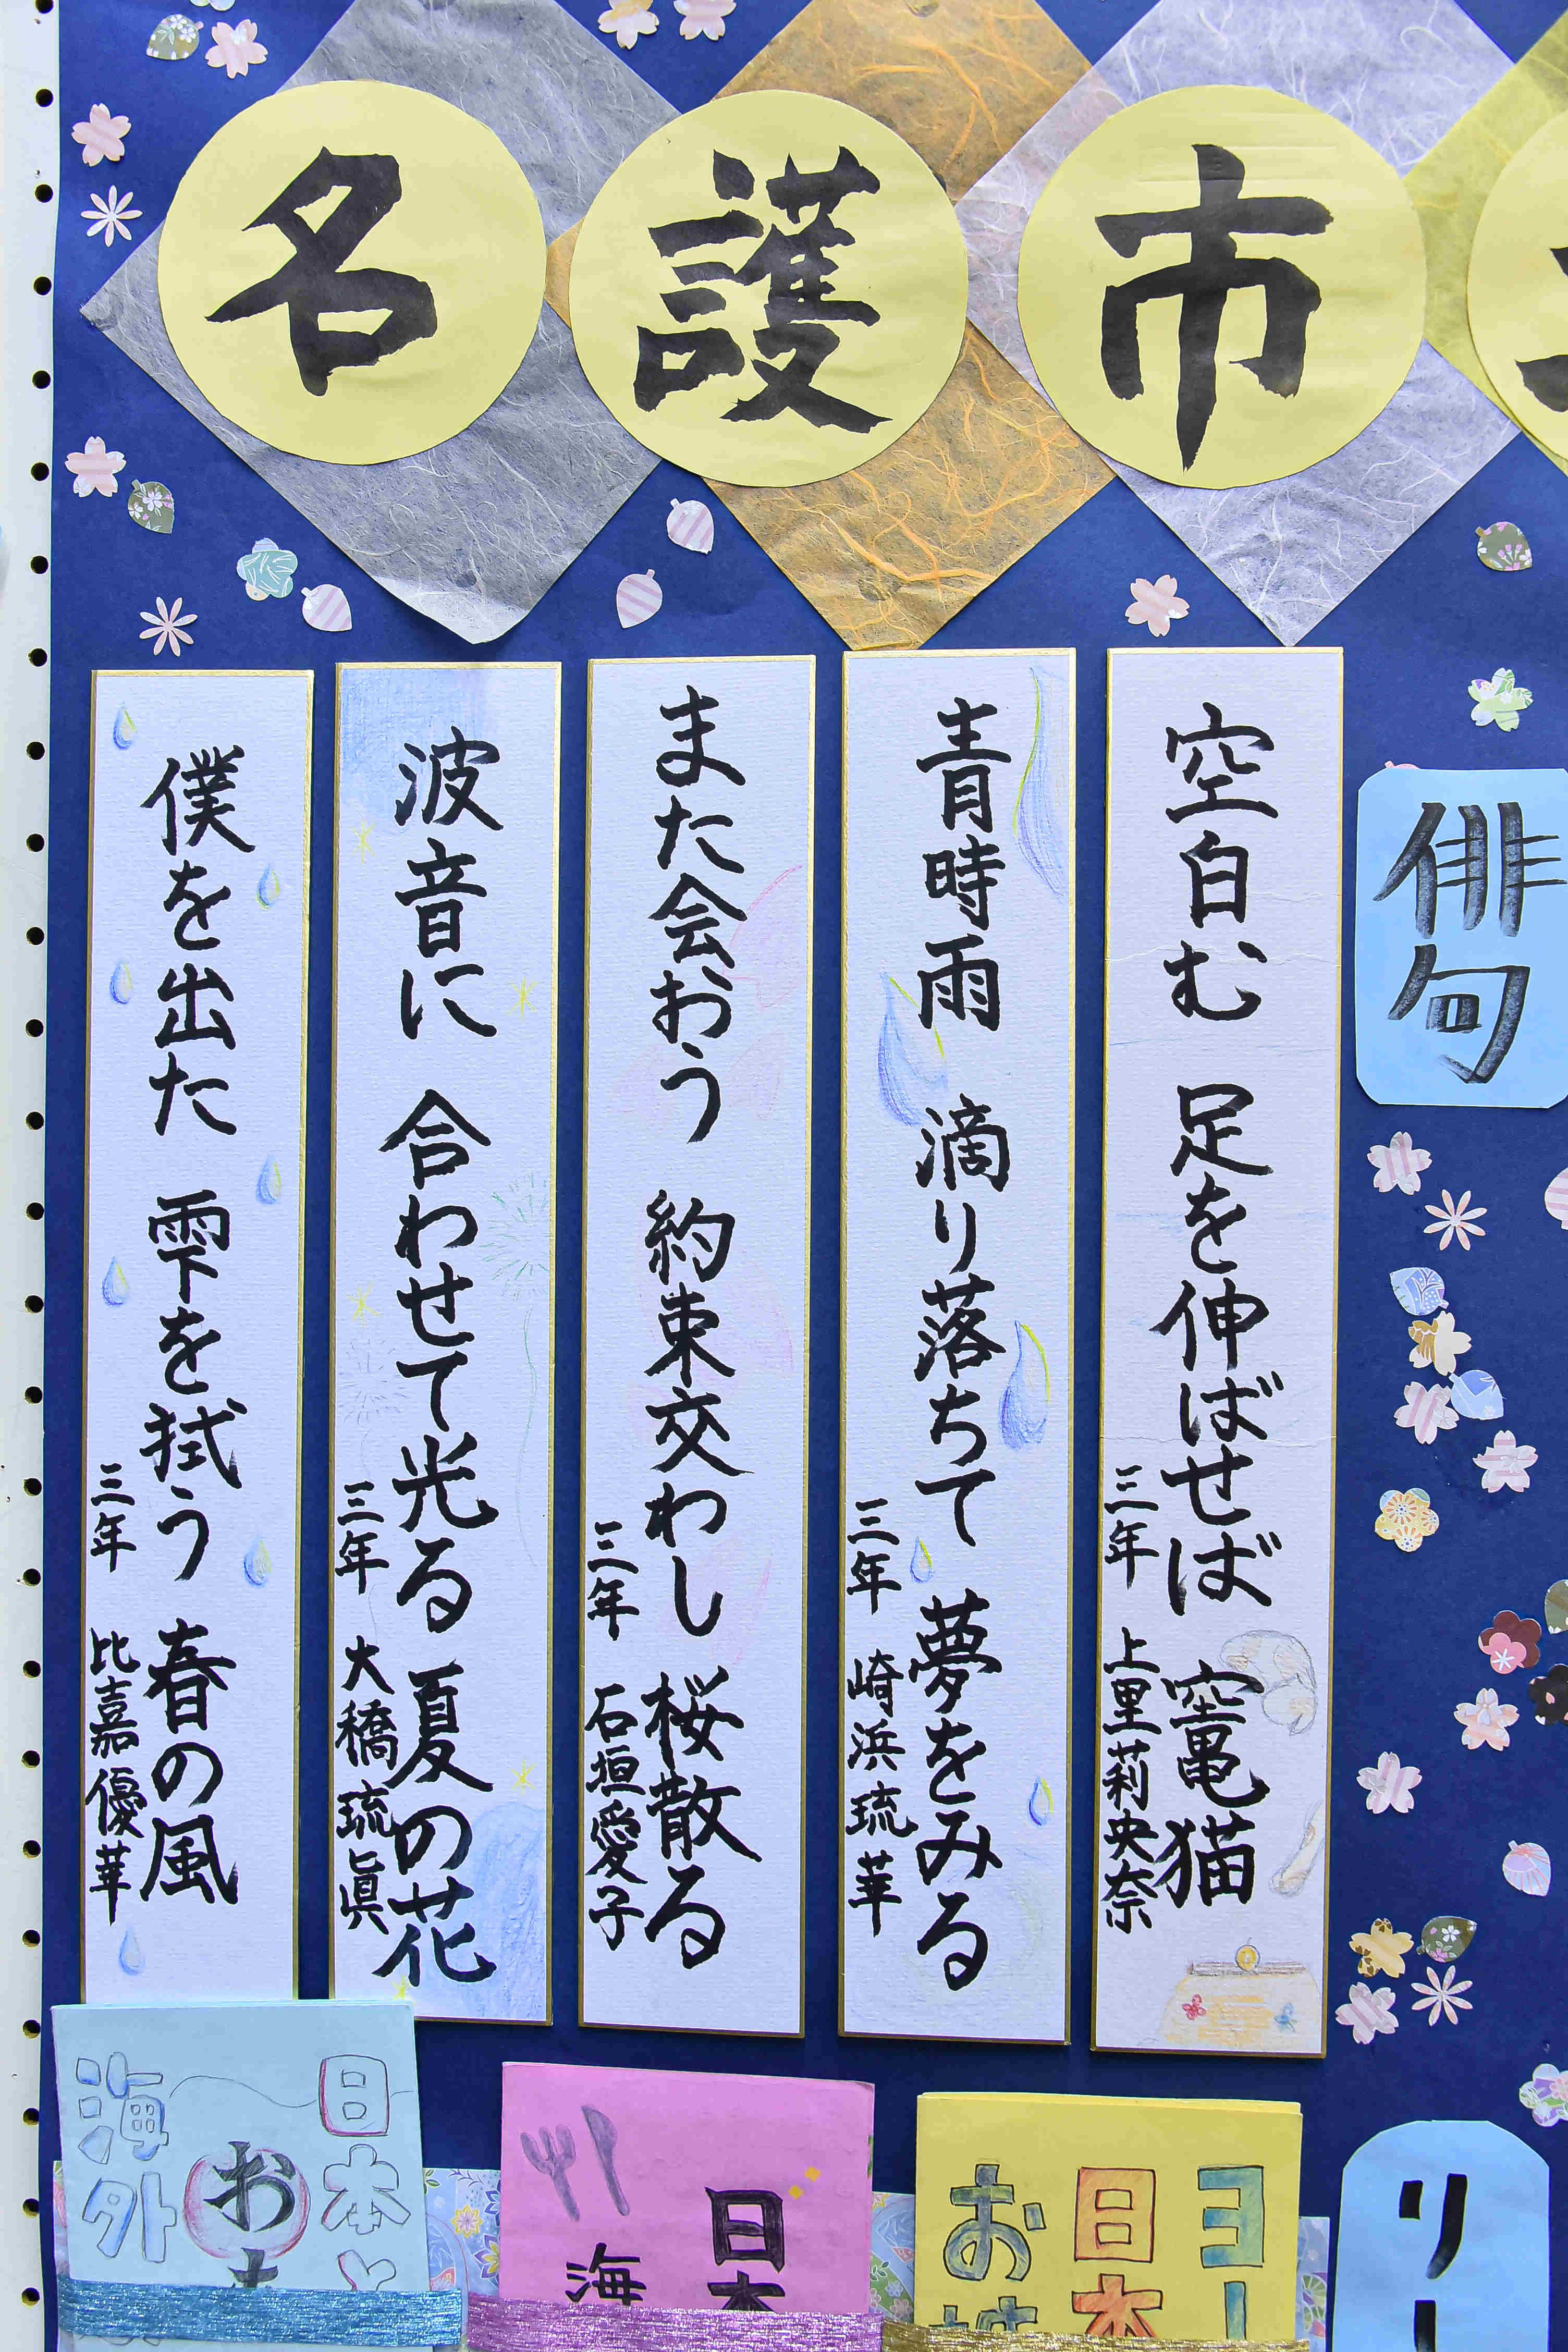 名護市
俳句
空白む 足を伸ばせば 竃猫
三年 上里莉央奈
青時雨 滴り落ちて 夢をみる
三年 崎浜琉華
また会おう 約束交わし 桜散る
三年 石垣愛子
波音に 合わせて光る 夏の花
三年 大穚琉眞
僕を出た 雫を拭う 春の風
三年 比嘉優華
リー
ヨー
日本
お城
日本
海
日本と
お
海外